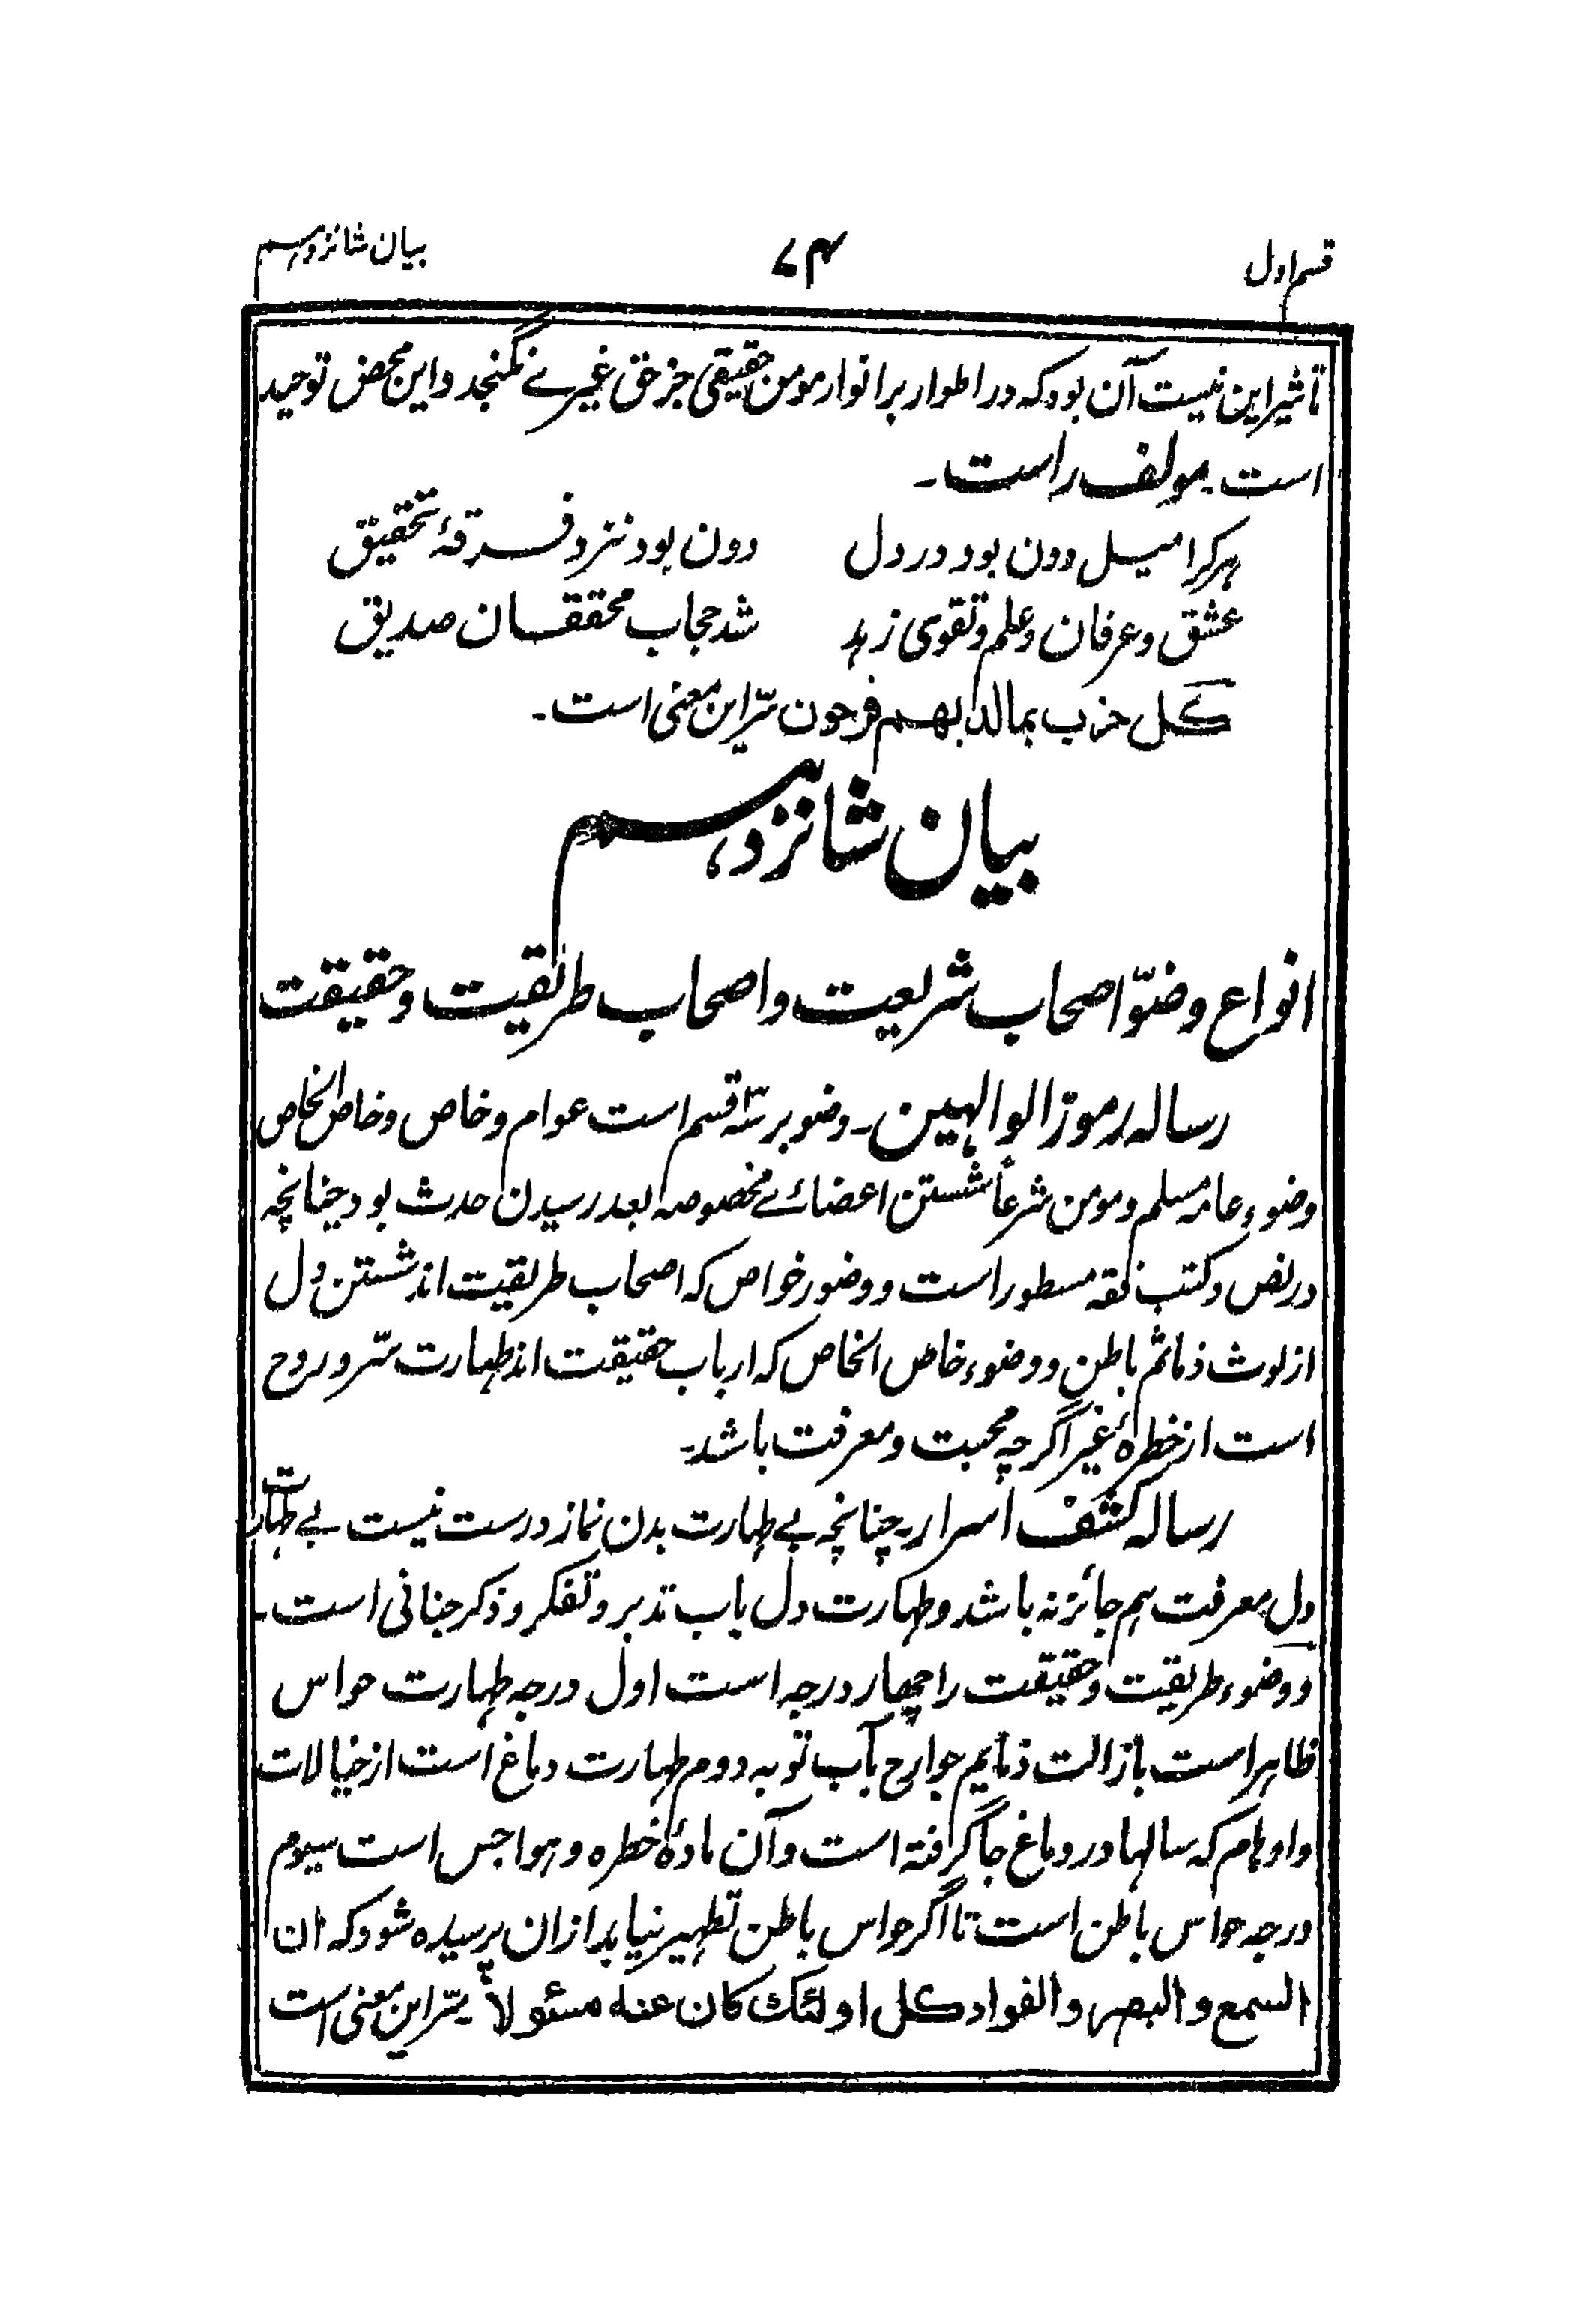 قسم اول ۷۴ بیان شانزدہم
تاثیر این نیست آن بود کہ در اطوار پر انوار مومن حقیقی جز حق غیرے نگنجد و این محض توحید
است۔ مولف راست۔
ہر کرا میل دون بود در دل دون بود نزد فرقۂ تحقیق
عشق و عرفان و علم و تقوی زہد شد حجاب محققان صدیق
کل حزب بما لدیہم فرحون سرّ این معنی است۔
بیان شانزدہم
انواع وضوّ اصحاب شریعت و اصحاب طریقیت و حقیقت
رسالہ رموز الوالہین۔ وضو بر سّہ قسم است عوام و خاص و خاص الخاص
وضوء عامہ مسلم و مومن شرعاً شستن اعضائے مخصوصہ بعد رسیدن حدث بود چنانچہ
در نص و کتب فقہ مسطور است و وضوء خواص کہ اصحاب طریقیت اند شستن دل
از لوث ذمائم باطن و وضوء خاص الخاص کہ ارباب حقیقت اند طہارت سّر و روح
است از خطرۂ غیر اگرچہ محبت و معرفت باشد۔
رسالہ کشف اسرار۔ چنانچہ بے طہارت بدن نماز درست نیست بے طہارت
دل معرفت ہم جائز نہ باشد و طہارت دل بآب تدبر و تفکر و ذکر جنانی است۔
و وضوء طریقیت و حقیقت را چہار درجہ است اول درجہ طہارت حواس
ظاہر است بازالت ذمایم جوارح بآب توبہ دوم طہارت دماغ است از خیالات
و اوہام کہ سالہا در دماغ جا گرفتہ است و آن مادۂ خطرہ و ہواجس است سیوم
درجہ حواس باطن است تا اگر حواس باطن تطہیر نیابد ازان پرسیدہ شود کہ ان
السمع و البصر و الفواد کل اولئک کان عنہ مسئولاً۔ سّر این معنی است